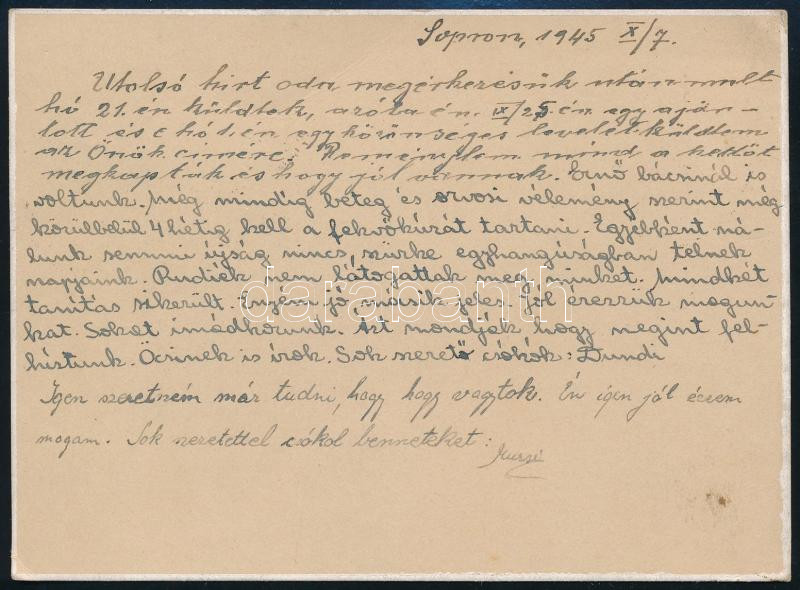 Sopron, 1945 X/7.
Utolsó hirt oda megérkezésük után mult
hó 21.én küldtek, azóta én IX/25 én egy aján-
lott és e hó 1.én egy közönséges levelet küldtem
az Önök cimére. Reméjlem mind a kettőt
megkapták és hogy jól vannak. Ernő bácsinál is
voltunk. Még mindig beteg és orvosi vélemény szerint még
körülbelül 4 hétig kell a fekvőkúrát tartani. Egyébként ná-
lunk semmi újság nincs, szürke egyhangúságban telnek
napjaink. Rudiék nem látogattak meg minket. Mindkét
tanítás sikerült. Enyém jó másik jeles. Jól érezzük magun-
kat. Sokat imádkozunk. Azt mondják hogy megint fel-
híztunk. Öcsinek is írok. Sok szerető csókok: Dundi
Igen szeretném már tudni, hogy hogy vagytok. Én igen jól érzem
magam. Sok szeretettel csókol benneteket:
darabanth